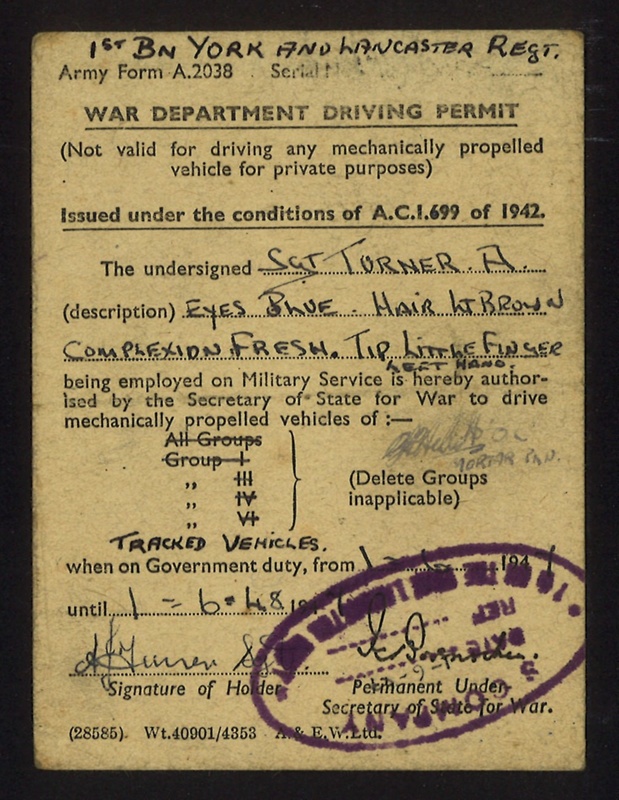 1ST BN YORK AND LANCASTER REGT.
Army Form A.2038 Serial
WAR DEPARTMENT DRIVING PERMIT
(Not valid for driving any mechanically propelled
vehicle for private purposes)
Issued under the conditions of A.C.I.699 of 1942.
The undersigned SGT TURNER. A.
(description) EYES BLUE. HAIR LT BROWN
COMPLEXION FRESH. TIP LITTLE FINGER
LEFT HAND.
being employed on Military Service is hereby author-
ised by the Secretary of State for War to drive
mechanically propelled vehicles of :—
All Groups
Group I
„ III
„ IV
„ VI
(Delete Groups
inapplicable)
MORTAR
TRACKED VEHICLES.
when on Government duty, from 194
until 1-6-48
A Turner Sgt
Signature of Holder
Permanent Under
Secretary of State for War.
(28585) Wt.40901/4353 A. & E.W.Ltd.
COMPANY
DATE
REF